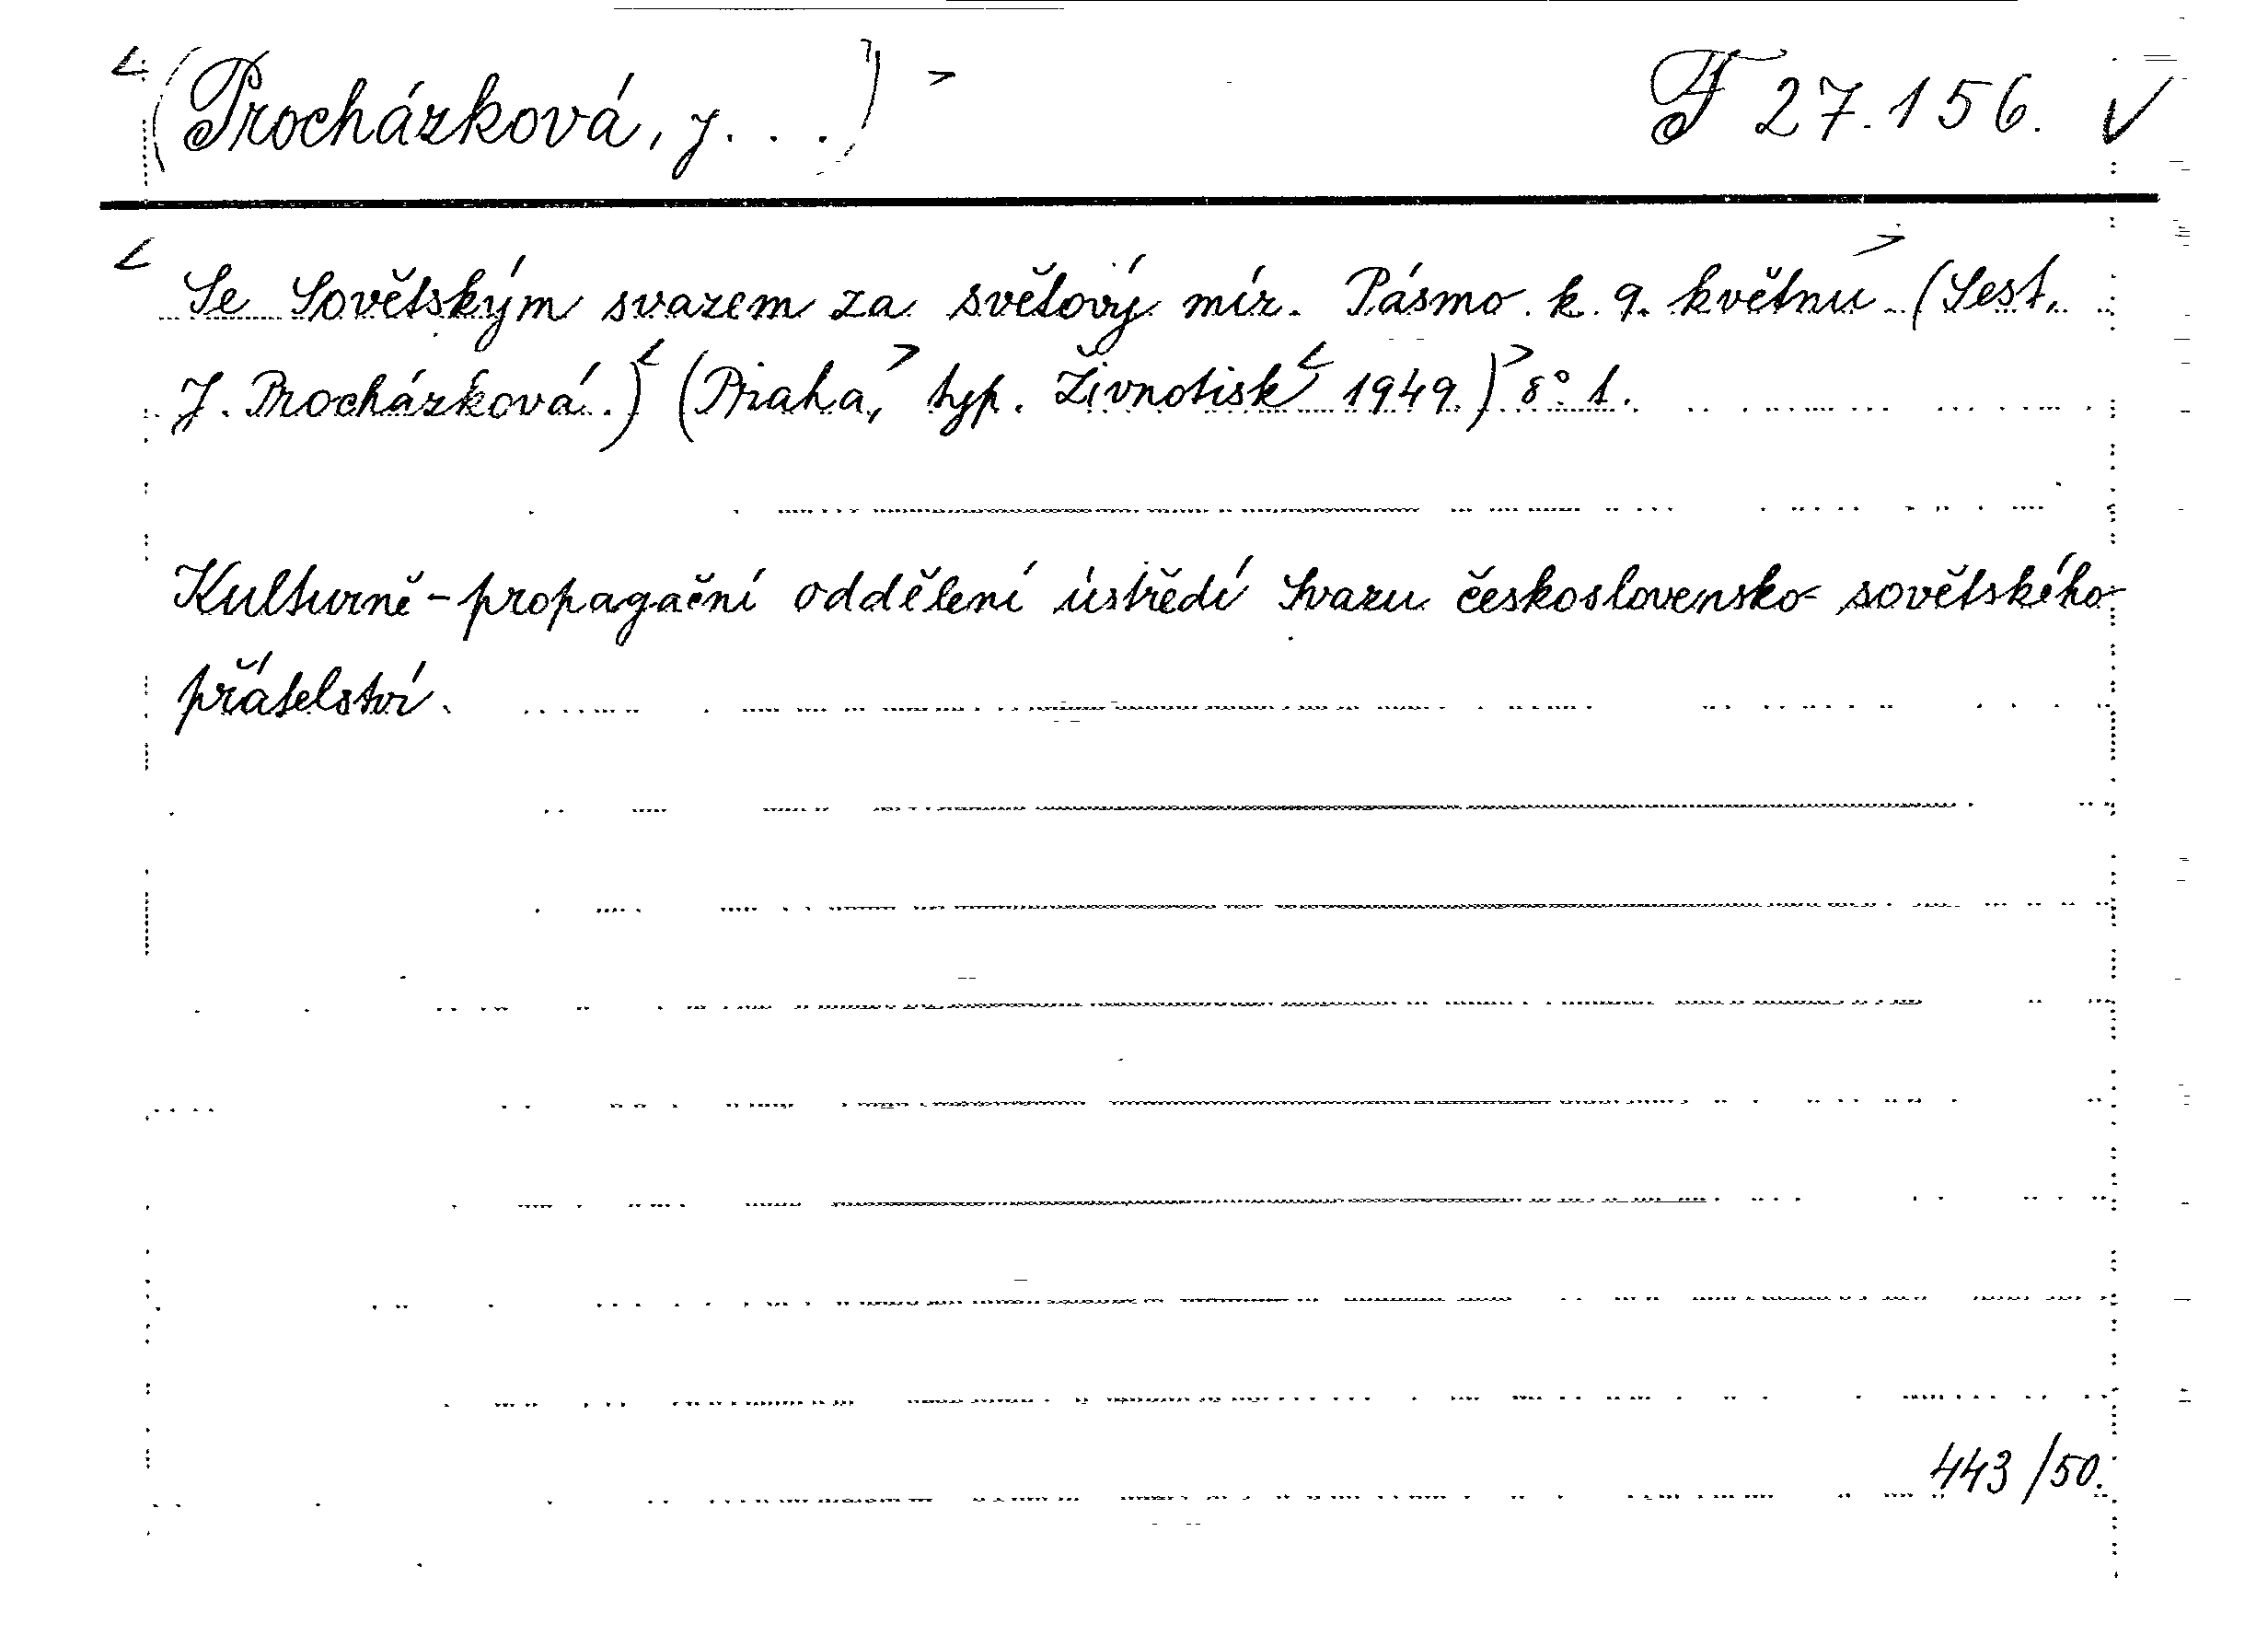 <(Procházková, J...)> F 27.156. ✓
< Se Sovětským svazem za světový mír. Pásmo k 9. květnu > (Sest.
J. Procházková.) < (Praha, > typ. Živnotisk < 1949.) > 8° 1.
Kulturně-propagační oddělení ústředí Svazu československo-sovětského
přátelství.
443/50.